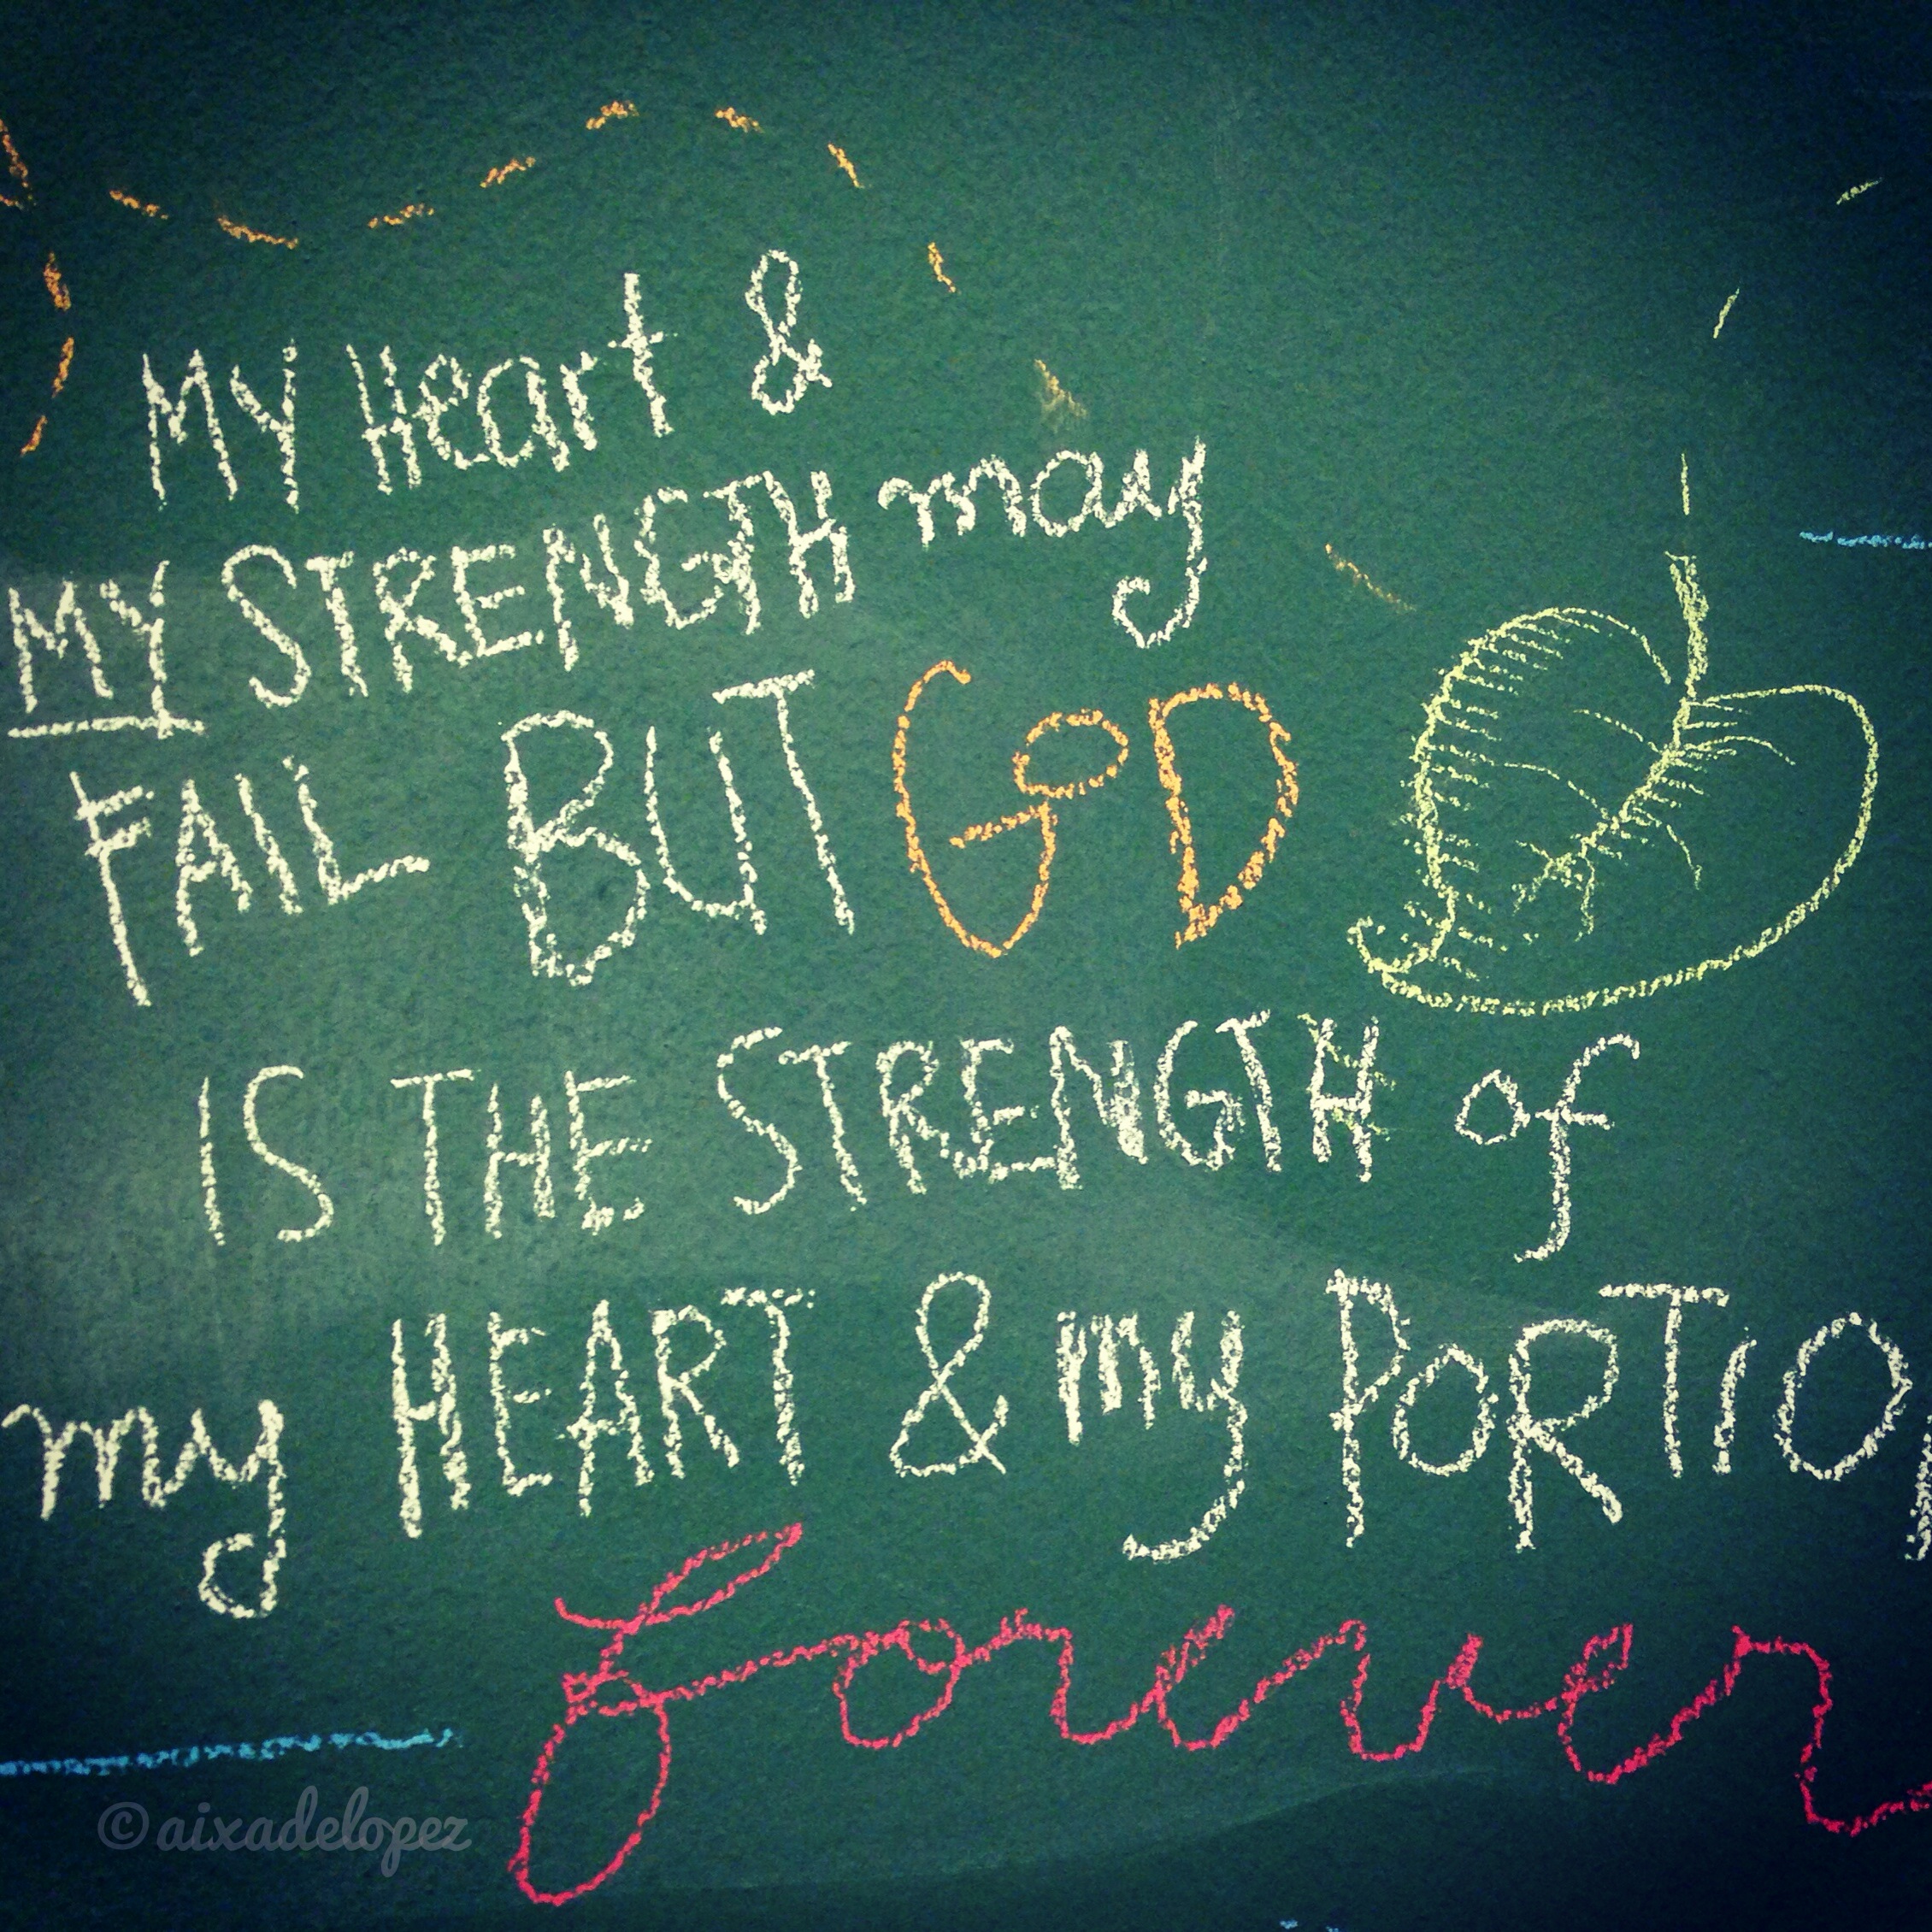 My Heart &
MY STRENGTH may
FAIL BUT GOD
IS THE STRENGTH of
my HEART & my PORTION
forever
©aixadelopez